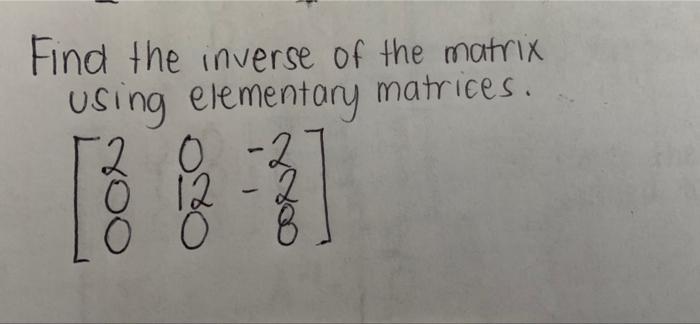 Find the inverse of the matrix
using elementary matrices.
2 0 -2
0 12 -2
0 0 8